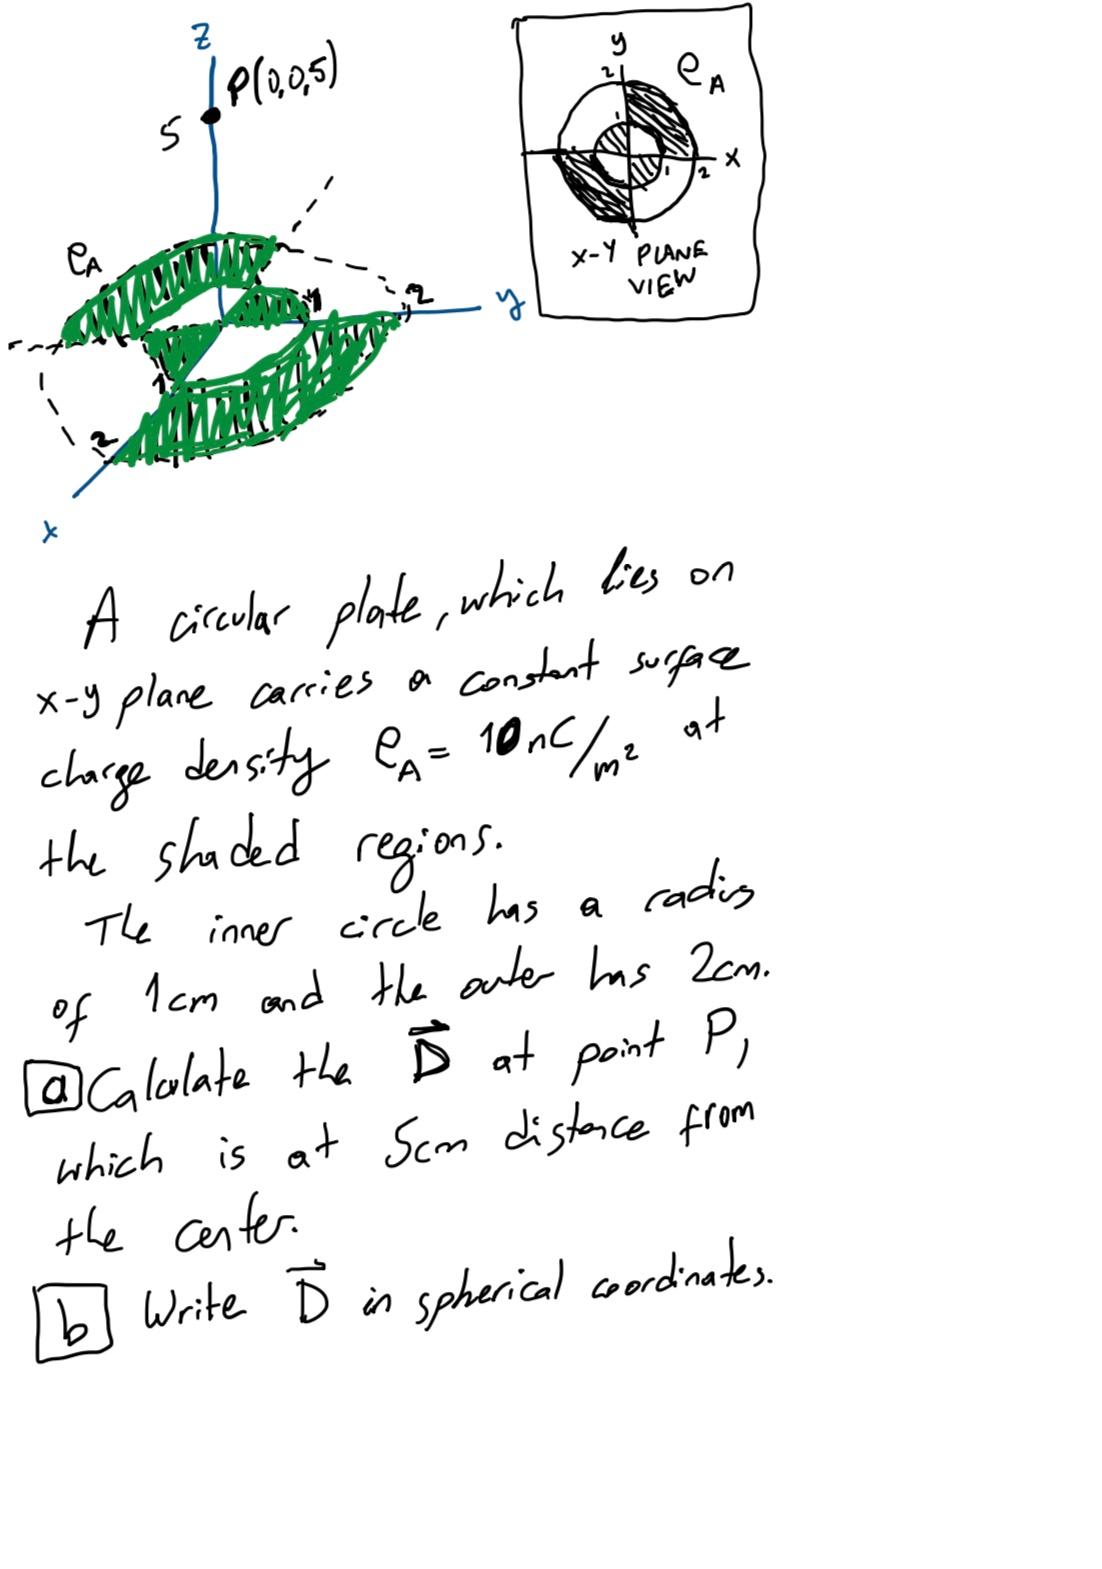 z
P(0,0,5)
5
ρA
1
2
y
1
2
x
y
2
ρA
1
x
1
2
x-y PLANE
VIEW
A circular plate, which lies on
x-y plane carries a constant surface
charge density ρA = 10nC/m² at
the shaded regions.
The inner circle has a radius
of 1cm and the outer has 2cm.
a Calculate the D⃗ at point P,
which is at 5cm distance from
the center.
b Write D⃗ in spherical coordinates.